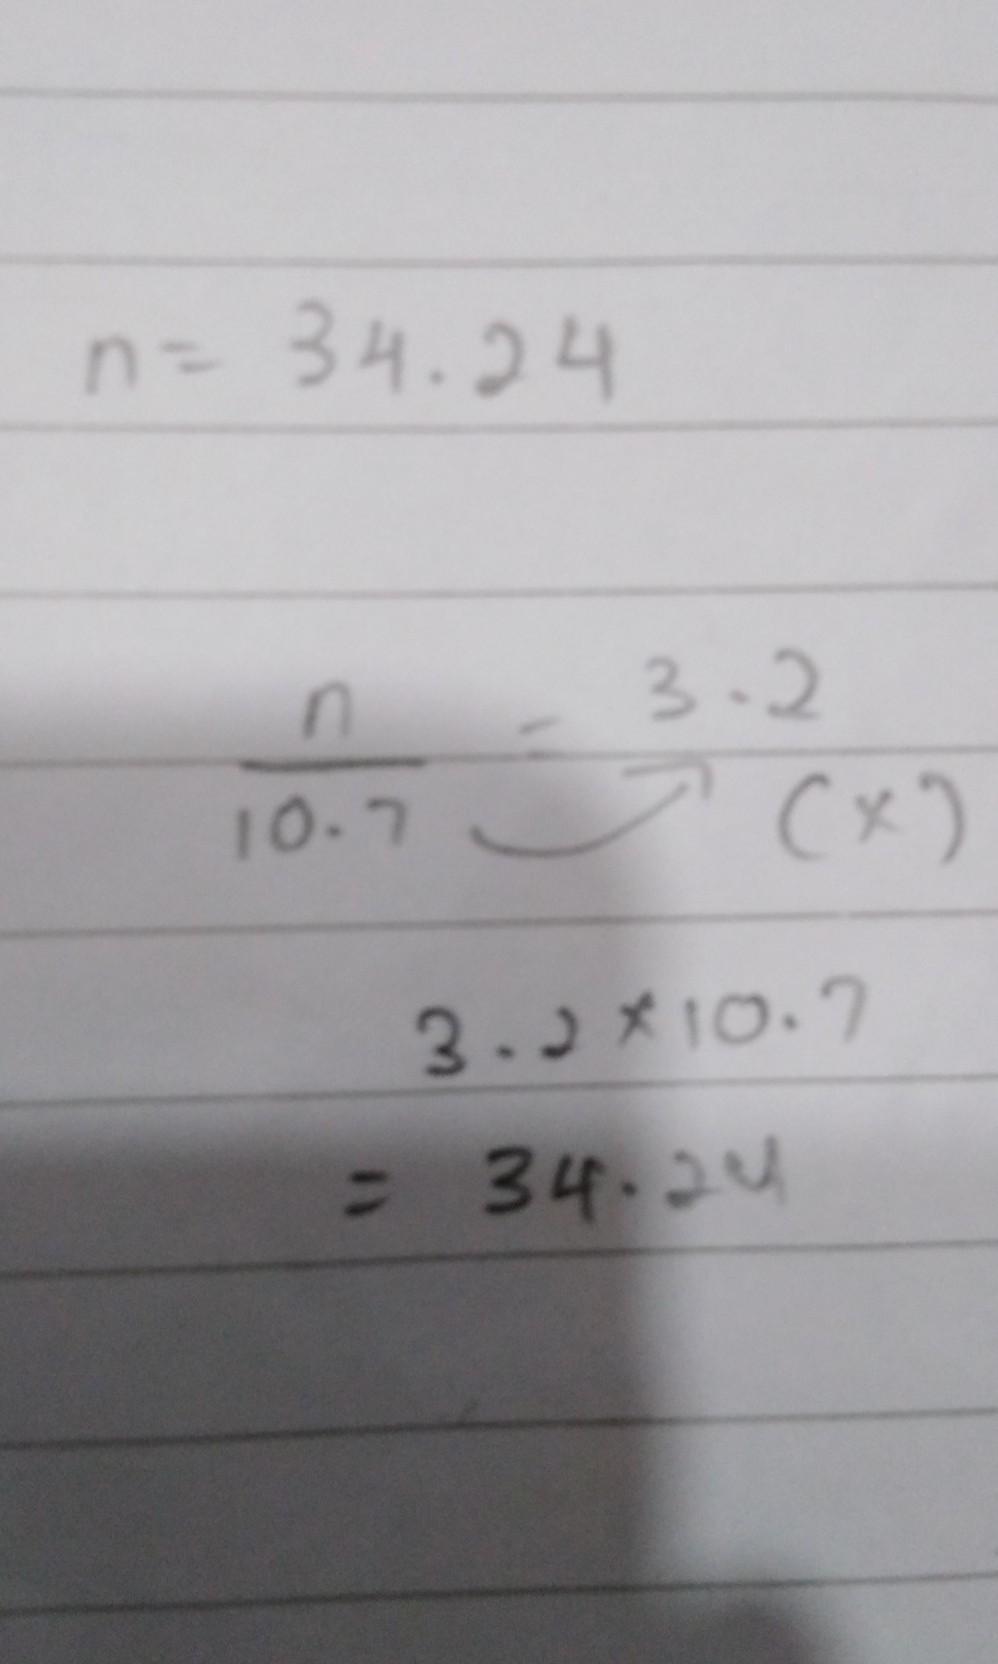 n = 34.24
n/10.7 = 3.2
(x)
3.2 x 10.7
= 34.24